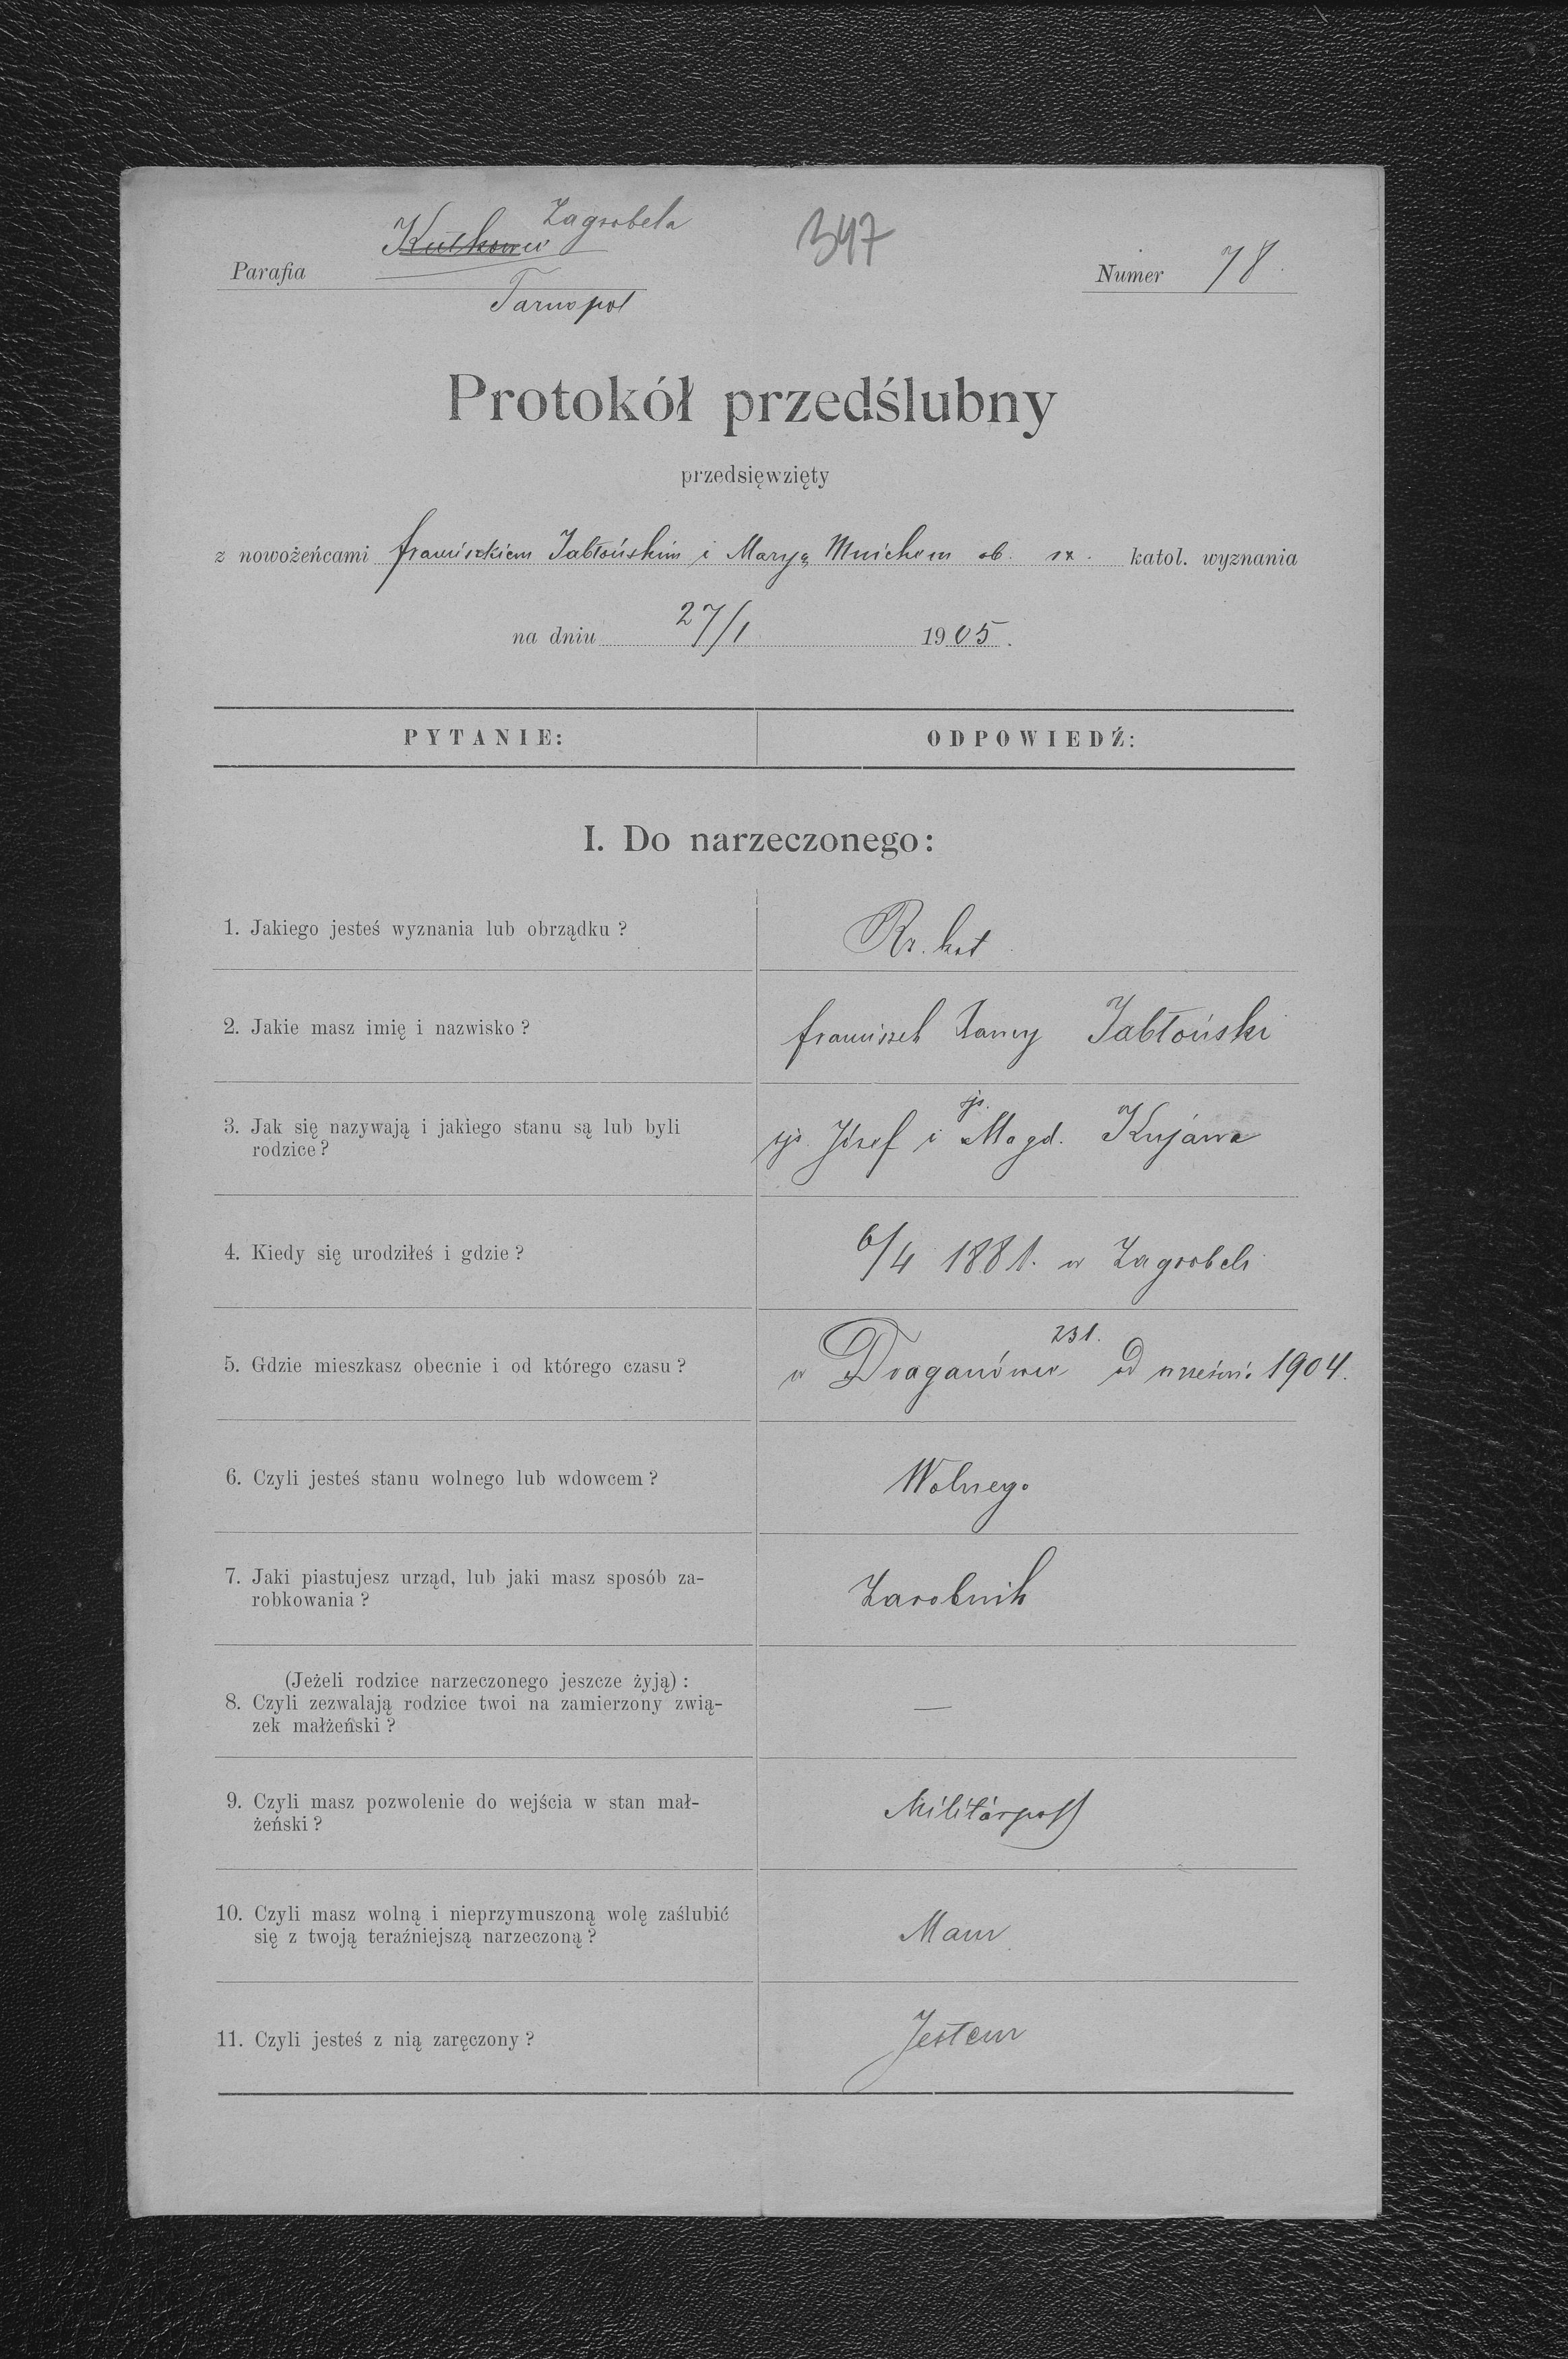 Zagrobela
Parafia Kutkow
347
Numer 78.
Tarnopol
Protokół przedślubny
przedsięwzięty
z nowożeńcami franciszkiem Jabłońskim i Maryą Mnichem ob. rz. katol. wyznania
na dniu 27/1 1905.
PYTANIE: ODPOWIEDŹ:
I. Do narzeczonego:
1. Jakiego jesteś wyznania lub obrządku? Rz. kat
2. Jakie masz imię i nazwisko? franciszek Jabłoński
3. Jak się nazywają i jakiego stanu są lub byli
rodzice? Józef i Magd. Kujawa
4. Kiedy się urodziłeś i gdzie? 6/4 1881. w Zagrobeli
231.
5. Gdzie mieszkasz obecnie i od którego czasu? w Draganówce od wrześni. 1904.
6. Czyli jesteś stanu wolnego lub wdowcem? Wolnego
7. Jaki piastujesz urząd, lub jaki masz sposób za-
robkowania? Zarobnik
(Jeżeli rodzice narzeczonego jeszcze żyją):
8. Czyli zezwalają rodzice twoi na zamierzony zwią-
zek małżeński? —
9. Czyli masz pozwolenie do wejścia w stan mał-
żeński? Militärpass
10. Czyli masz wolną i nieprzymuszoną wolę zaślubić
się z twoją teraźniejszą narzeczoną? Mam
11. Czyli jesteś z nią zaręczony? Jestem